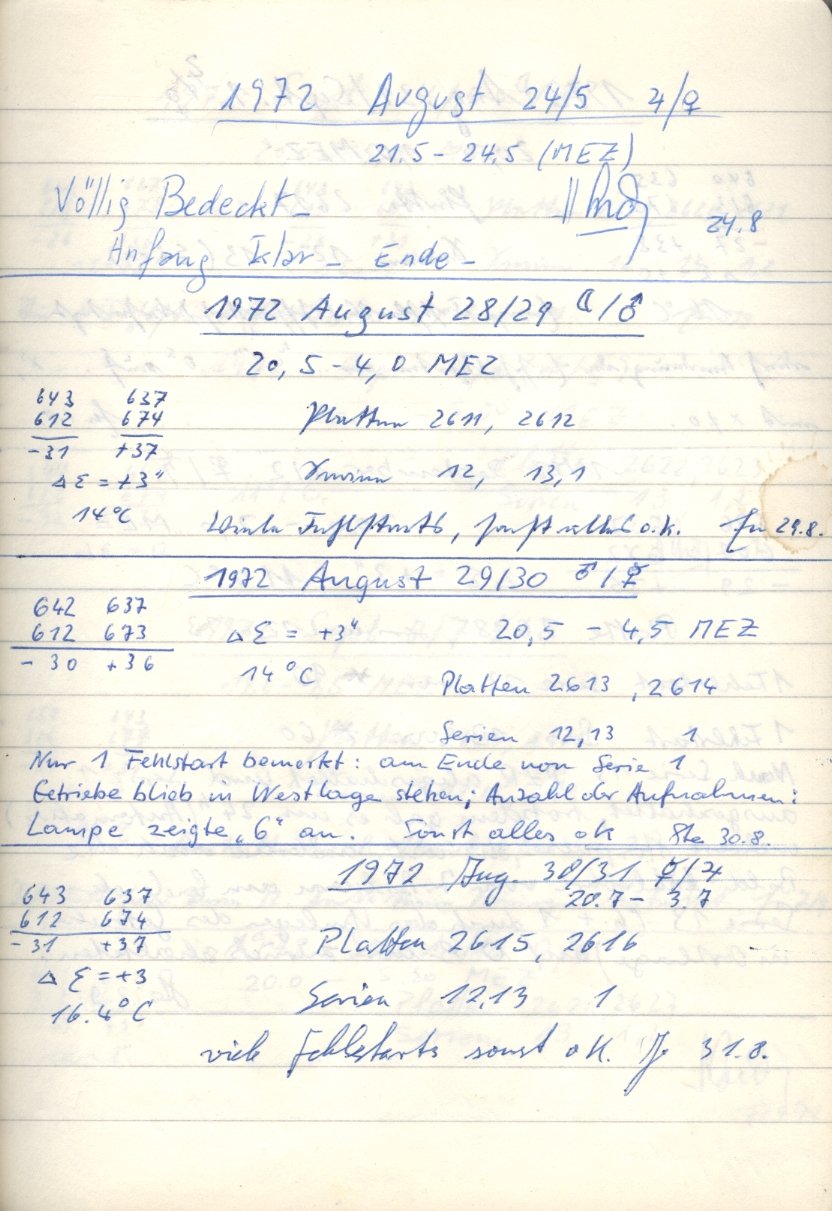 1972 August 24/5 ♃/♀
21.5 - 24.5 (MEZ)
Völlig Bedeckt - 24.8
Anfang klar - Ende -
1972 August 28/29 ☾/♂
20,5 - 4,0 MEZ
643 637
612 674 Platten 2611, 2612
-31 +37
Δ Σ = +3" Serien 12, 13, 1
14°C
Viele Fehlstarts, sonst alles o.k. 29.8.
1972 August 29/30 ♂/☿
642 637
612 673 Δ Σ = +3" 20,5 - 4,5 MEZ
- 30 +36
14°C Platten 2613, 2614
Serien 12,13 1
Nur 1 Fehlstart bemerkt: am Ende von Serie 1
Getriebe blieb in Westlage stehen; Anzahl der Aufnahmen:
Lampe zeigte „6" an. Sonst alles ok 30.8.
1972 Aug. 30/31 ☿/♃
20.7 - 3.7
643 637
612 674
-31 +37 Platten 2615, 2616
Δ Σ = +3
16.4°C Serien 12,13 1
viele Fehlstarts sonst ok. 31.8.